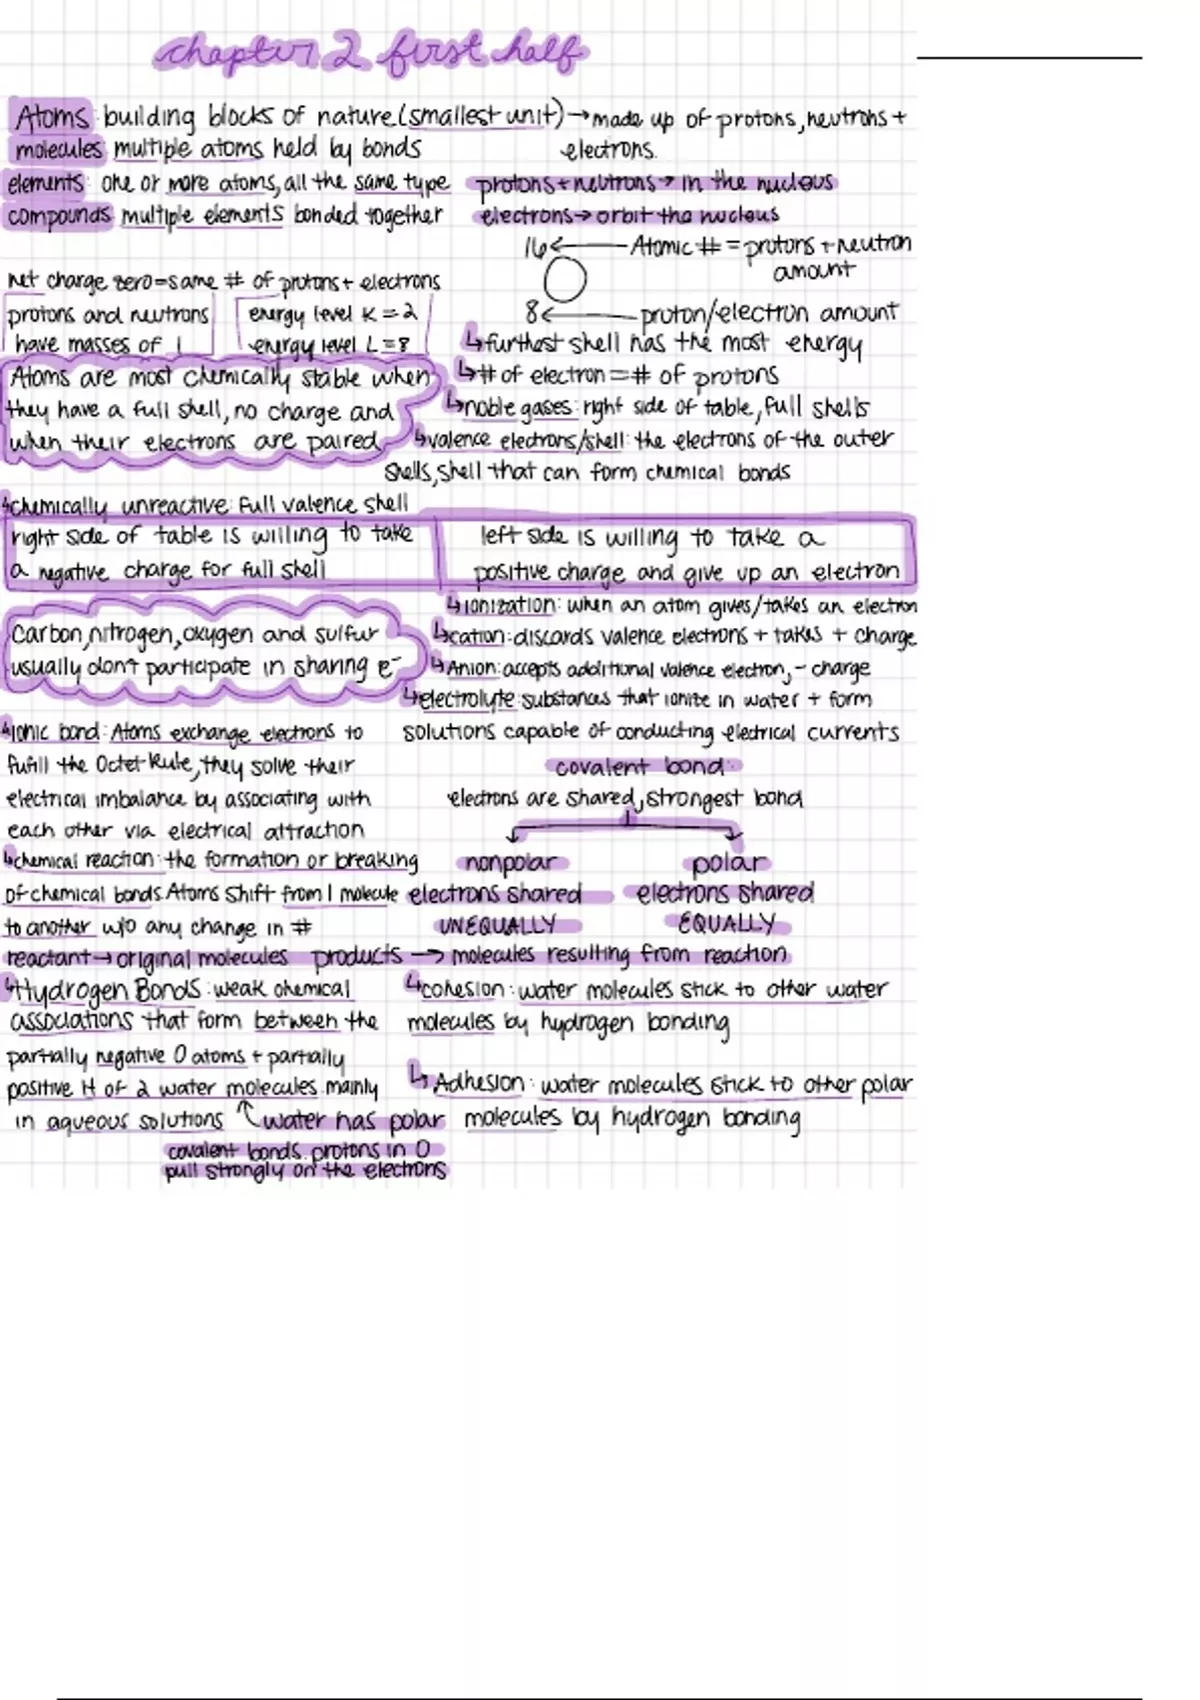 chapter 2 first half
Atoms: building blocks of nature (smallest unit) → made up of protons, neutrons +
electrons.
molecules: multiple atoms held by bonds
elements: one or more atoms, all the same type
compounds: multiple elements bonded together
protons + neutrons → in the nucleus
electrons → orbit the nucleus
16 ← Atomic # = protons + neutron
amount
8 ← proton/electron amount
net charge zero = same # of protons + electrons
protons and neutrons
have masses of 1
energy level K = 2
energy level L = 8
↳ furthest shell has the most energy
↳ # of electron = # of protons
↳ noble gases: right side of table, full shells
↳ valence electrons/shell: the electrons of the outer
shells, shell that can form chemical bonds
Atoms are most chemically stable when
they have a full shell, no charge and
when their electrons are paired
↳ chemically unreactive: full valence shell
right side of table is willing to take
a negative charge for full shell
left side is willing to take a
positive charge and give up an electron
↳ ionization: when an atom gives/takes an electron
↳ cation: discards valence electrons + takes + charge
↳ Anion: accepts additional valence electron, - charge
↳ electrolyte: substances that ionize in water + form
solutions capable of conducting electrical currents
Carbon, nitrogen, oxygen and sulfur
usually don't participate in sharing e-
↳ Ionic bond: Atoms exchange electrons to
fufill the Octet Rule, they solve their
electrical imbalance by associating with
each other via electrical attraction
covalent bond:
electrons are shared, strongest bond
nonpolar
electrons shared
UNEQUALLY
polar
electrons shared
EQUALLY
↳ chemical reaction: the formation or breaking
of chemical bonds. Atoms shift from 1 molecule
to another w/o any change in #
reactant → original molecules products → molecules resulting from reaction
↳ Hydrogen Bonds: weak chemical
associations that form between the
partially negative O atoms + partially
positive H of 2 water molecules. mainly
in aqueous solutions
water has polar
covalent bonds. protons in O
pull strongly on the electrons
↳ cohesion: water molecules stick to other water
molecules by hydrogen bonding
↳ Adhesion: water molecules stick to other polar
molecules by hydrogen bonding